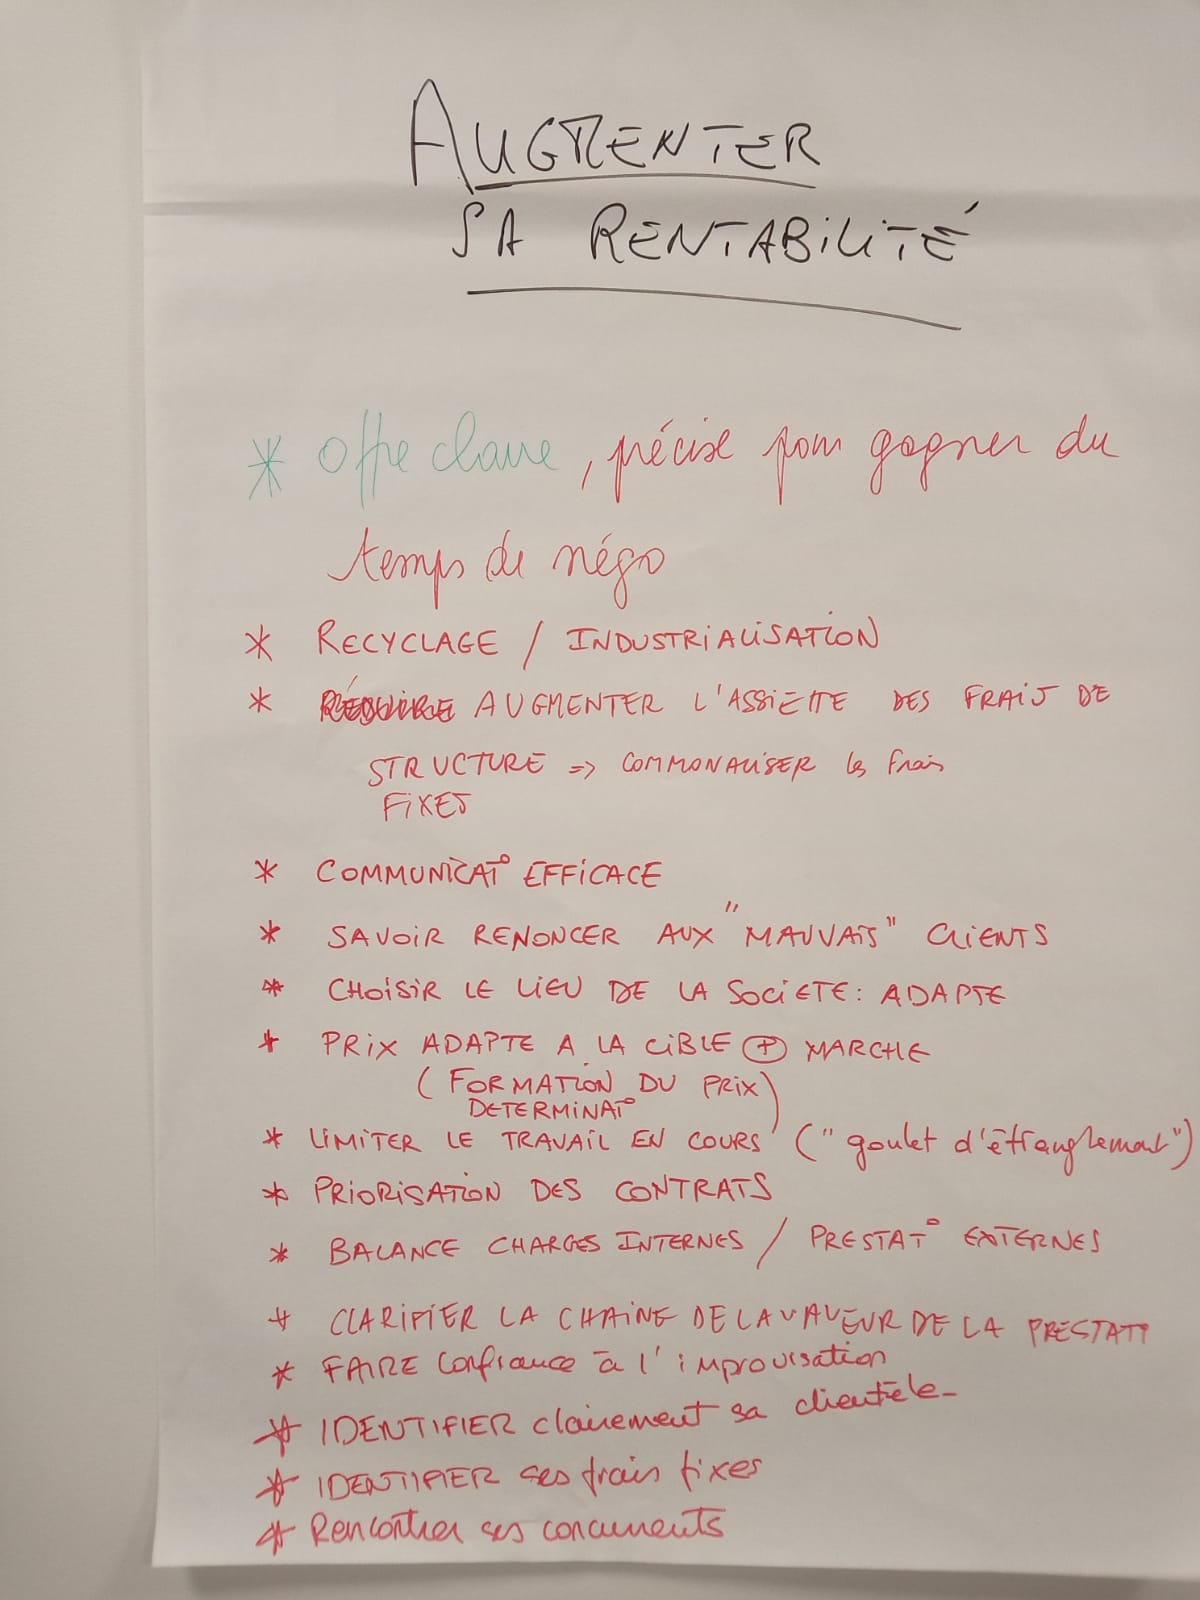 AUGMENTER
SA RENTABILITÉ
* Offre claire, précise pour gagner du
temps de négo
* RECYCLAGE / INDUSTRIALISATION
* RÉDUIRE AUGMENTER L'ASSIETTE DES FRAIS DE
STRUCTURE => COMMONALISER les frais
FIXES
* COMMUNICAT° EFFICACE
* SAVOIR RENONCER AUX "MAUVAIS" CLIENTS
* CHOISIR LE LIEU DE LA SOCIETE : ADAPTE
* PRIX ADAPTE A LA CIBLE ⊕ MARCHE
(FORMATION DU PRIX)
DETERMINAT°
* LIMITER LE TRAVAIL EN COURS ("goulet d'étranglement")
* PRIORISATION DES CONTRATS
* BALANCE CHARGES INTERNES / PRESTAT° EXTERNES
* CLARIFIER LA CHAINE DE LA VALEUR DE LA PRESTAT°
* FAIRE confiance à l'improvisation
* IDENTIFIER clairement sa clientèle
* IDENTIFIER ses frais fixes
* Rencontrer ses concurrents